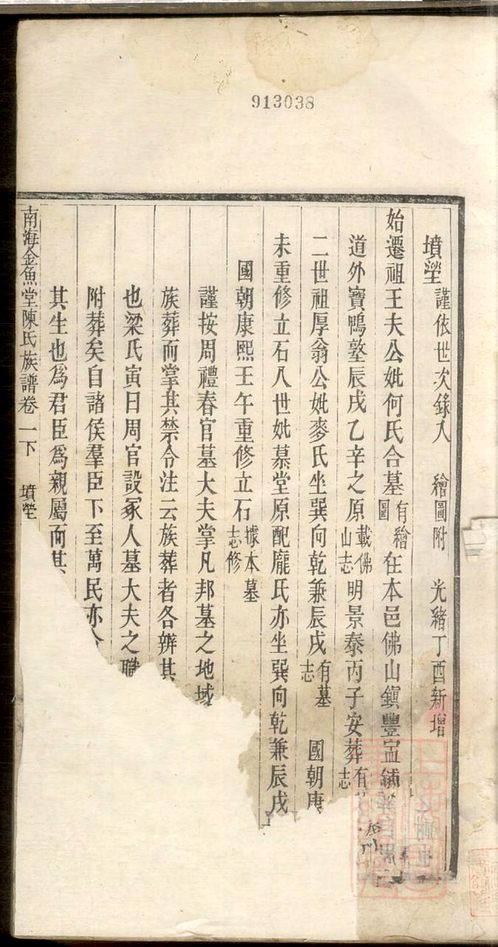 913038
墳塋 謹依世次錄入 繪圖附 光緒丁酉新增
始遷祖王夫公妣何氏合墓有繪圖在本邑佛山鎭豐寍舖
道外寶鴨塾辰戌乙辛之原載佛山志明景泰丙子安葬有志
二世祖厚翁公妣麥氏坐巽向乾兼辰戌有墓志 國朝庚
未重修立石八世妣慕堂原配龐氏亦坐巽向乾兼辰戌
國朝康熙壬午重修立石據本墓志修
謹按周禮春官墓大夫掌凡邦墓之地域
族葬而掌其禁令注云族葬者各辨其
也梁氏寅曰周官設冢人墓大夫之職
附葬矣自諸侯羣臣下至萬民亦
其生也爲君臣爲親屬而其
南海金魚堂陳氏族譜卷一下 墳塋